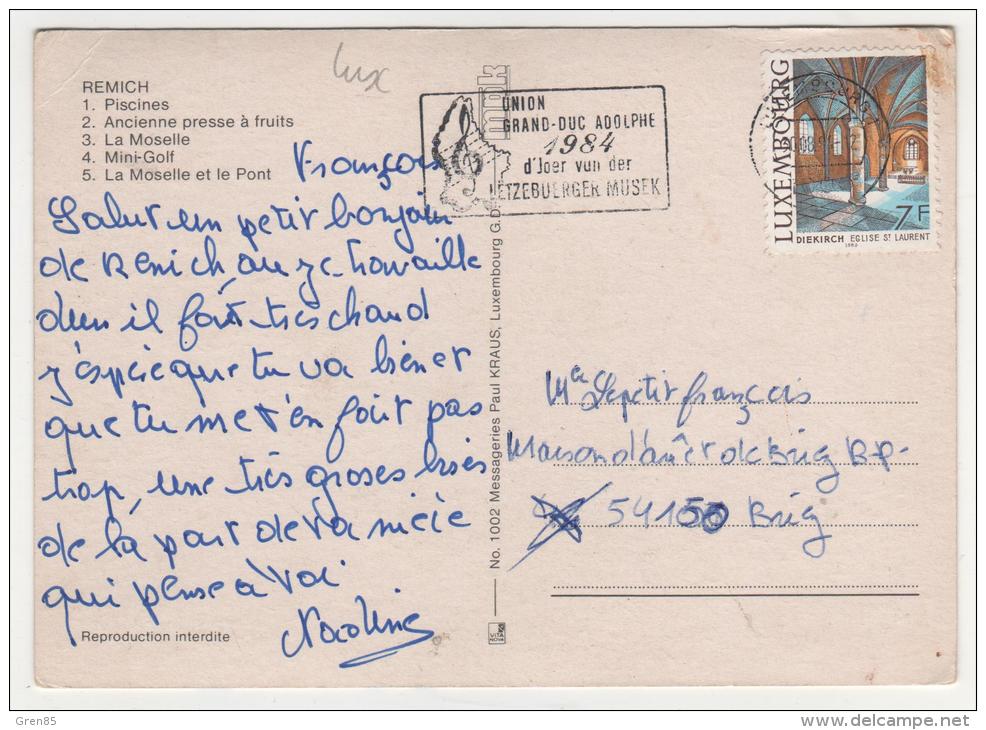 REMICH
1. Piscines
2. Ancienne presse à fruits
3. La Moselle
4. Mini-Golf
5. La Moselle et le Pont
lux
UNION
GRAND-DUC ADOLPHE
1984
d'Joer vun der
LETZEBUERGER MUSEK
LUXEMBOURG
7F
DIEKIRCH EGLISE ST LAURENT
François
Salut un petit bonjour
de Remich, ou je travaille
il fait très chand
j'espèce que tu va bien et
que tu me t'en fait pas
trop, une très groses bises
de la part de ta nièce
qui pense à toi
Reproduction interdite
No. 1002 Messageries Paul KRAUS, Luxembourg G.D.
mpk
VITA
NOVA
Lepetit françois
Maison d'arrêt de Briey B.P.
54150 Briey
Gren85
www.delcampe.net